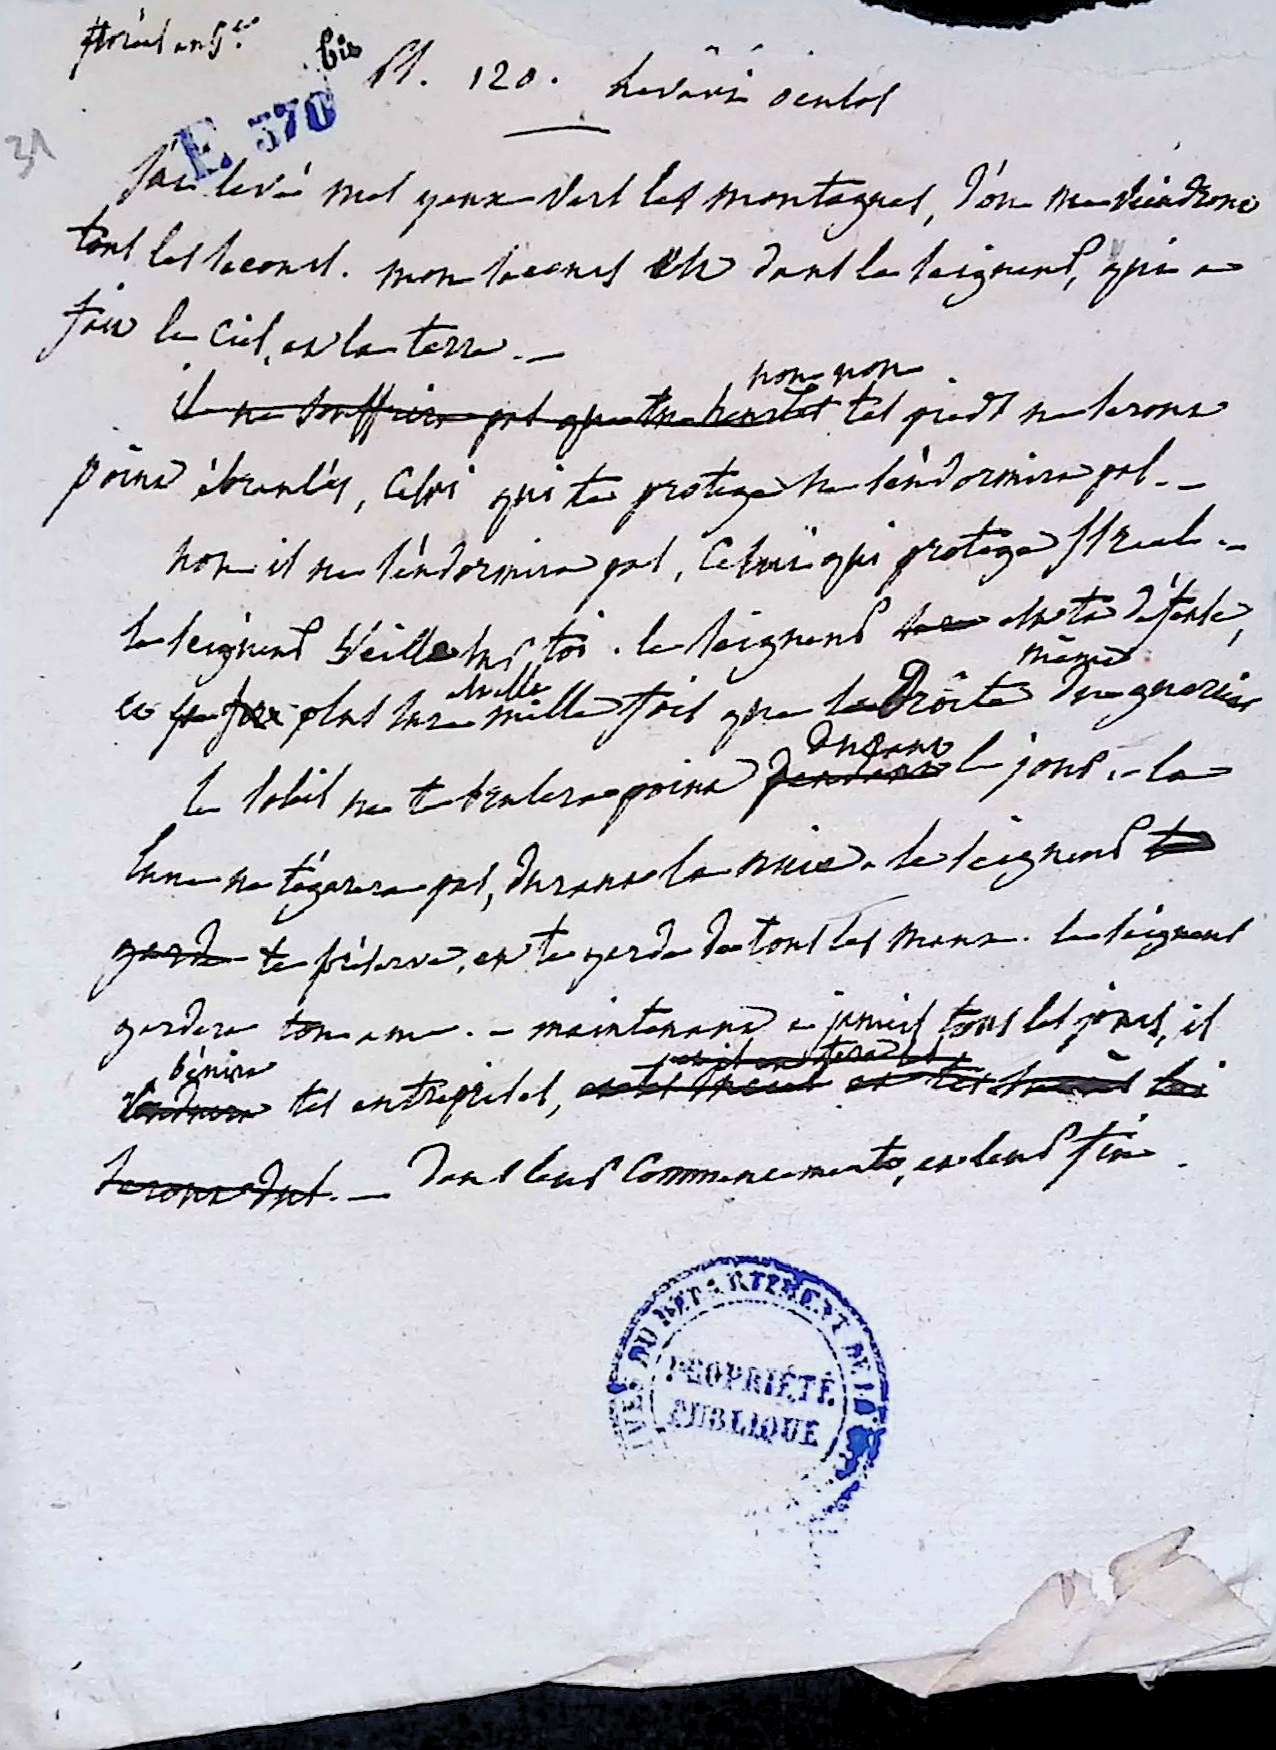 floréal an 5e.
bis
E. 370
31
Ps. 120. Levavi oculos
J'ai levé mes yeux vers les montagnes, d'ou me viendront
tous les secours. mon secours est dans le seigneur, qui a
fait le Ciel, et la terre. _
non non
il ne souffrira pas que tu heurtes tes pieds ne seront
point ébranlés, Celui qui te protege ne s'endormira pas. _
non il ne s'endormira pas, Celui qui protege Israel. _
le seigneur veille sur toi. le seigneur sera est ta défense,
même
et plus sure mille fois que la Droite du guerrier
durant
le soleil ne te brulera point pendant le jour. _ la
lune ne t'égarera pas, durant la nuit. le seigneur te
garde te préserve, et te garde de tous les maux. le seigneur
gardera ton ame. _ maintenant a jamais tous les jours, il
bénira
tes entreprises,
seront dus. _ dans leur Commencement, et leur fin.
IVES DU DÉPARTEMENT DE L
PROPRIÉTÉ
PUBLIQUE